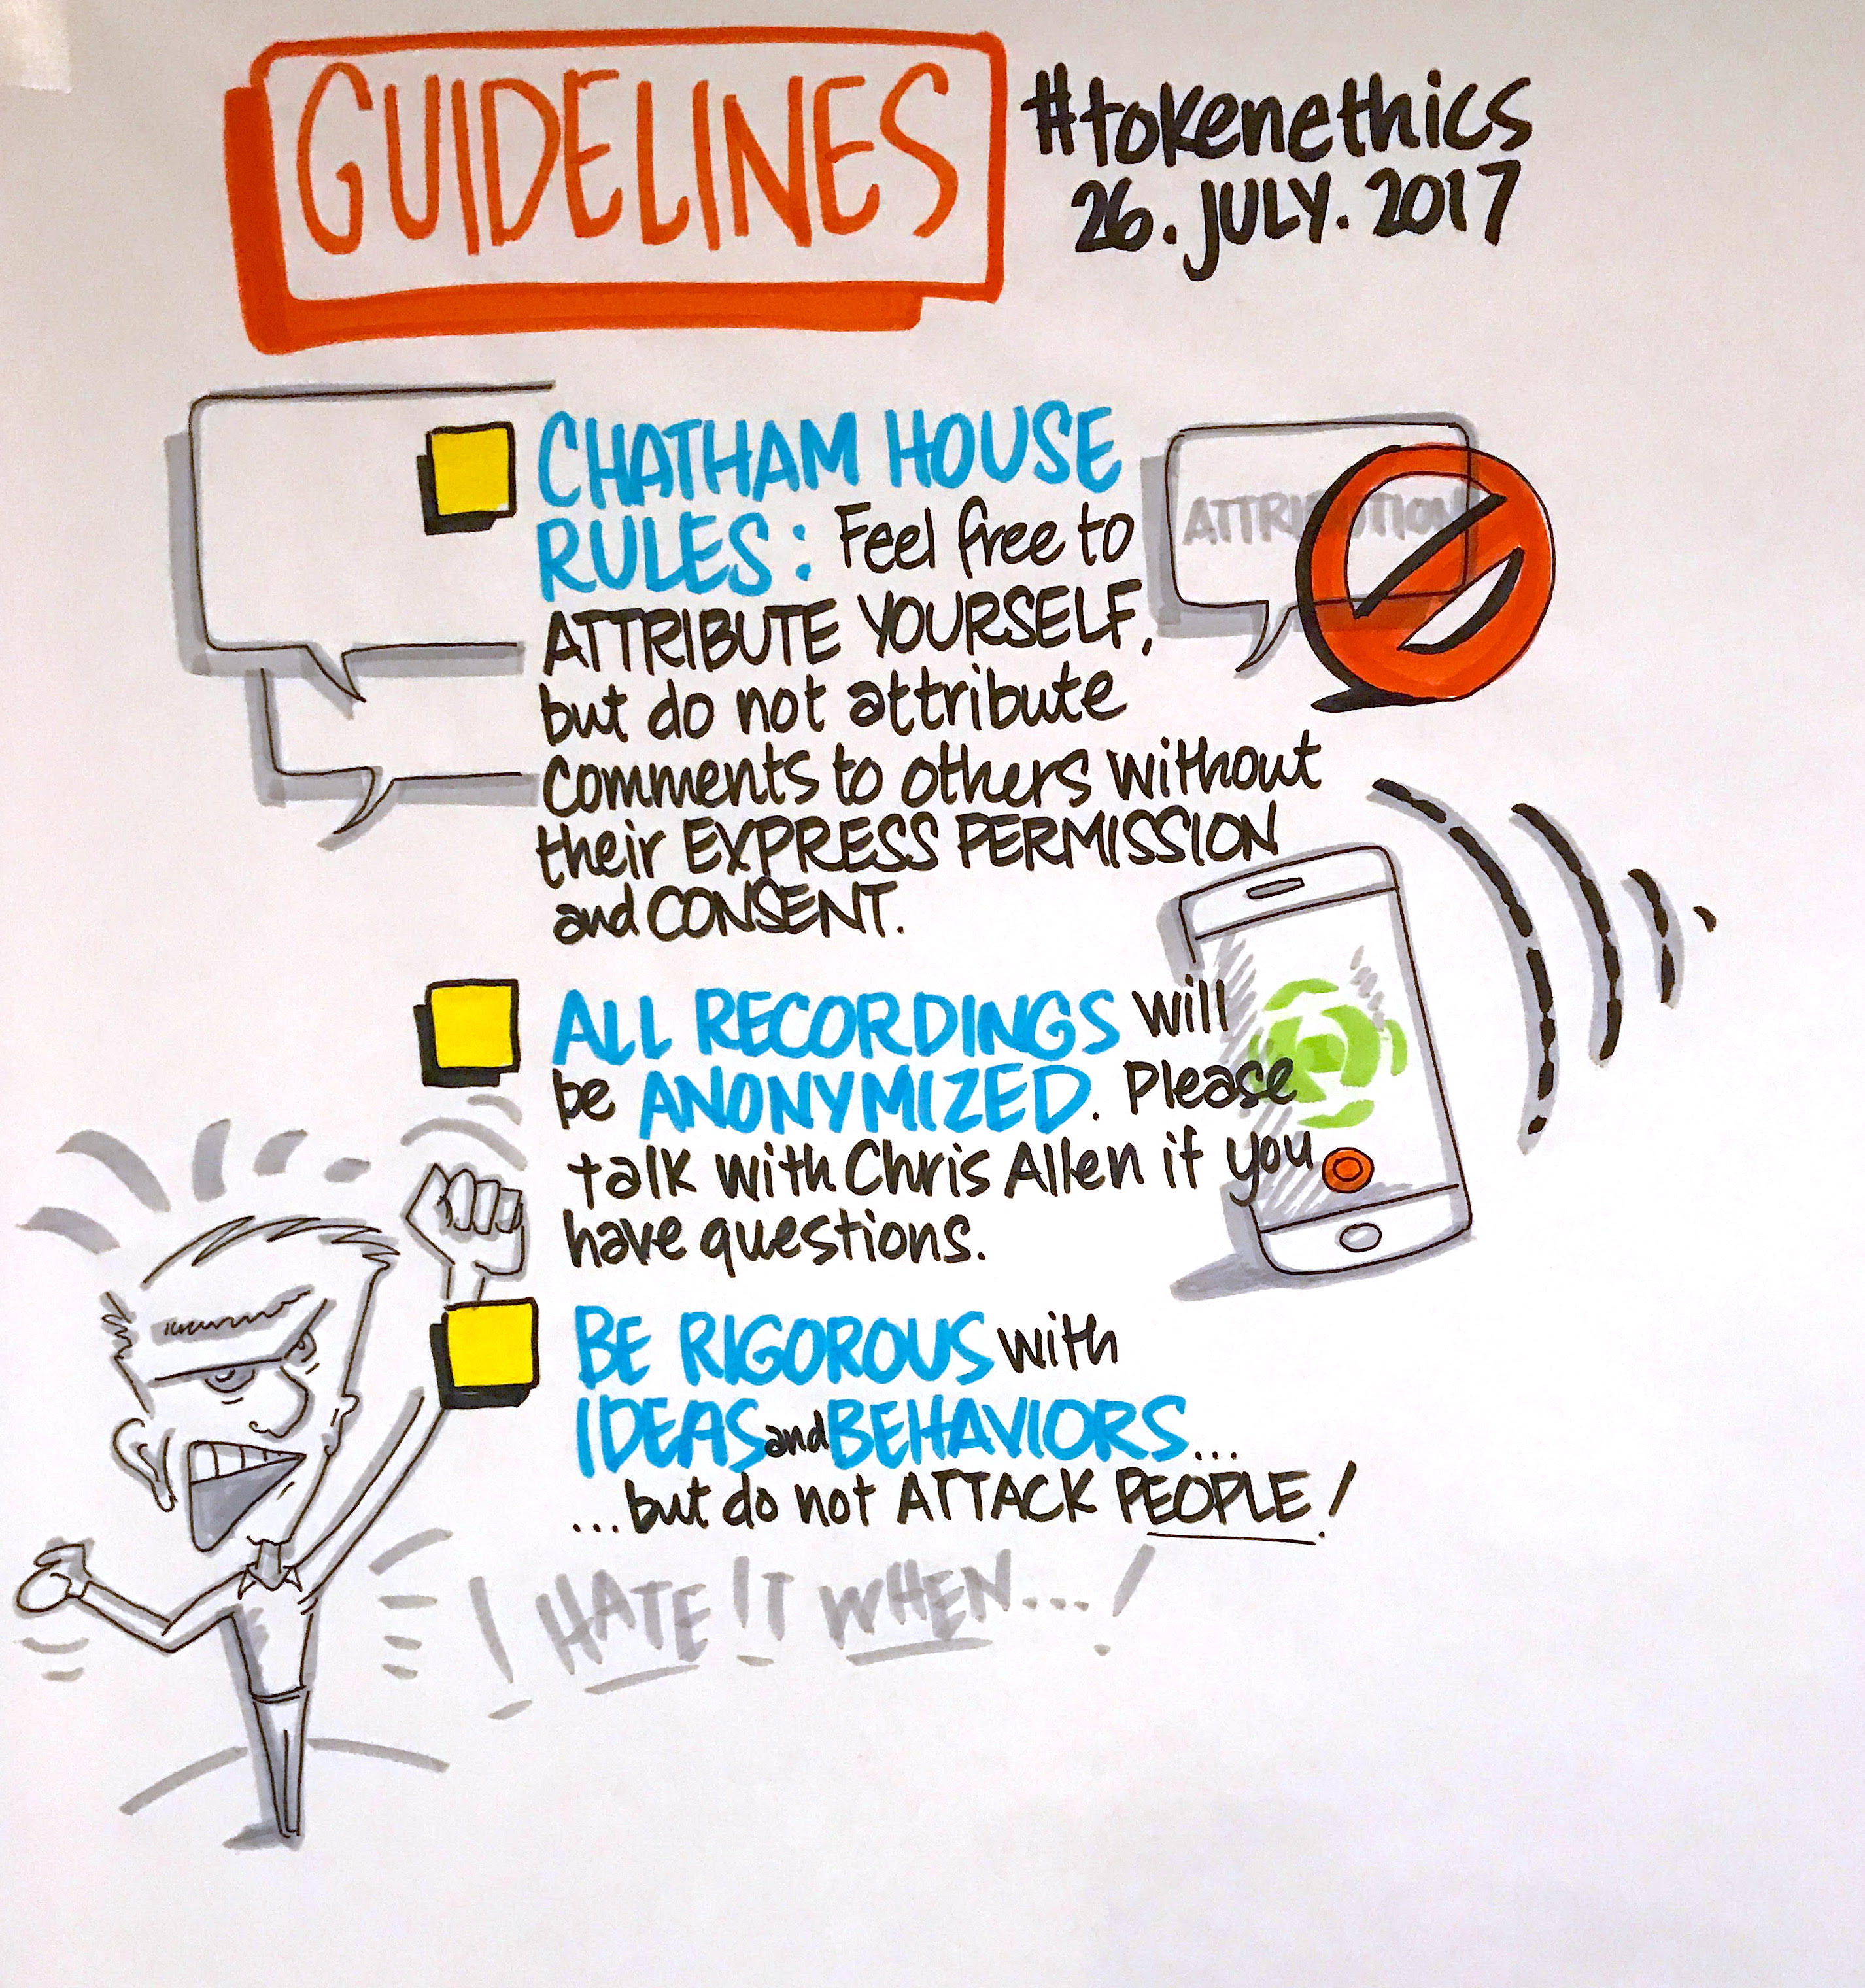 GUIDELINES
#tokenethics
26. JULY. 2017
CHATHAM HOUSE
RULES: Feel free to
ATTRIBUTE YOURSELF,
but do not attribute
comments to others without
their EXPRESS PERMISSION
and CONSENT.
ATTRIBUTION
ALL RECORDINGS will
be ANONYMIZED. Please
talk with Chris Allen if you
have questions.
BE RIGOROUS with
IDEAS and BEHAVIORS...
...but do not ATTACK PEOPLE!
I HATE IT WHEN...!